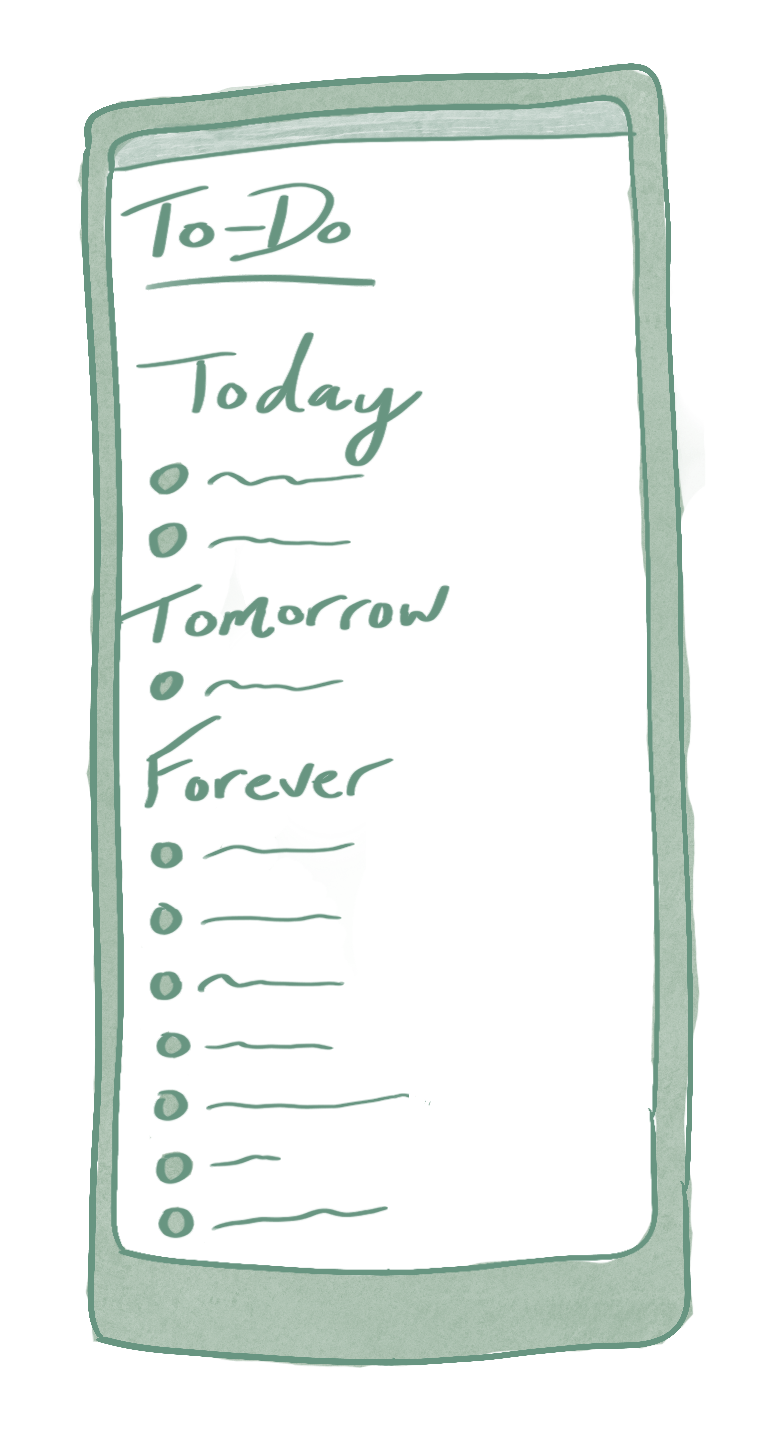 To-Do
Today
Tomorrow
Forever